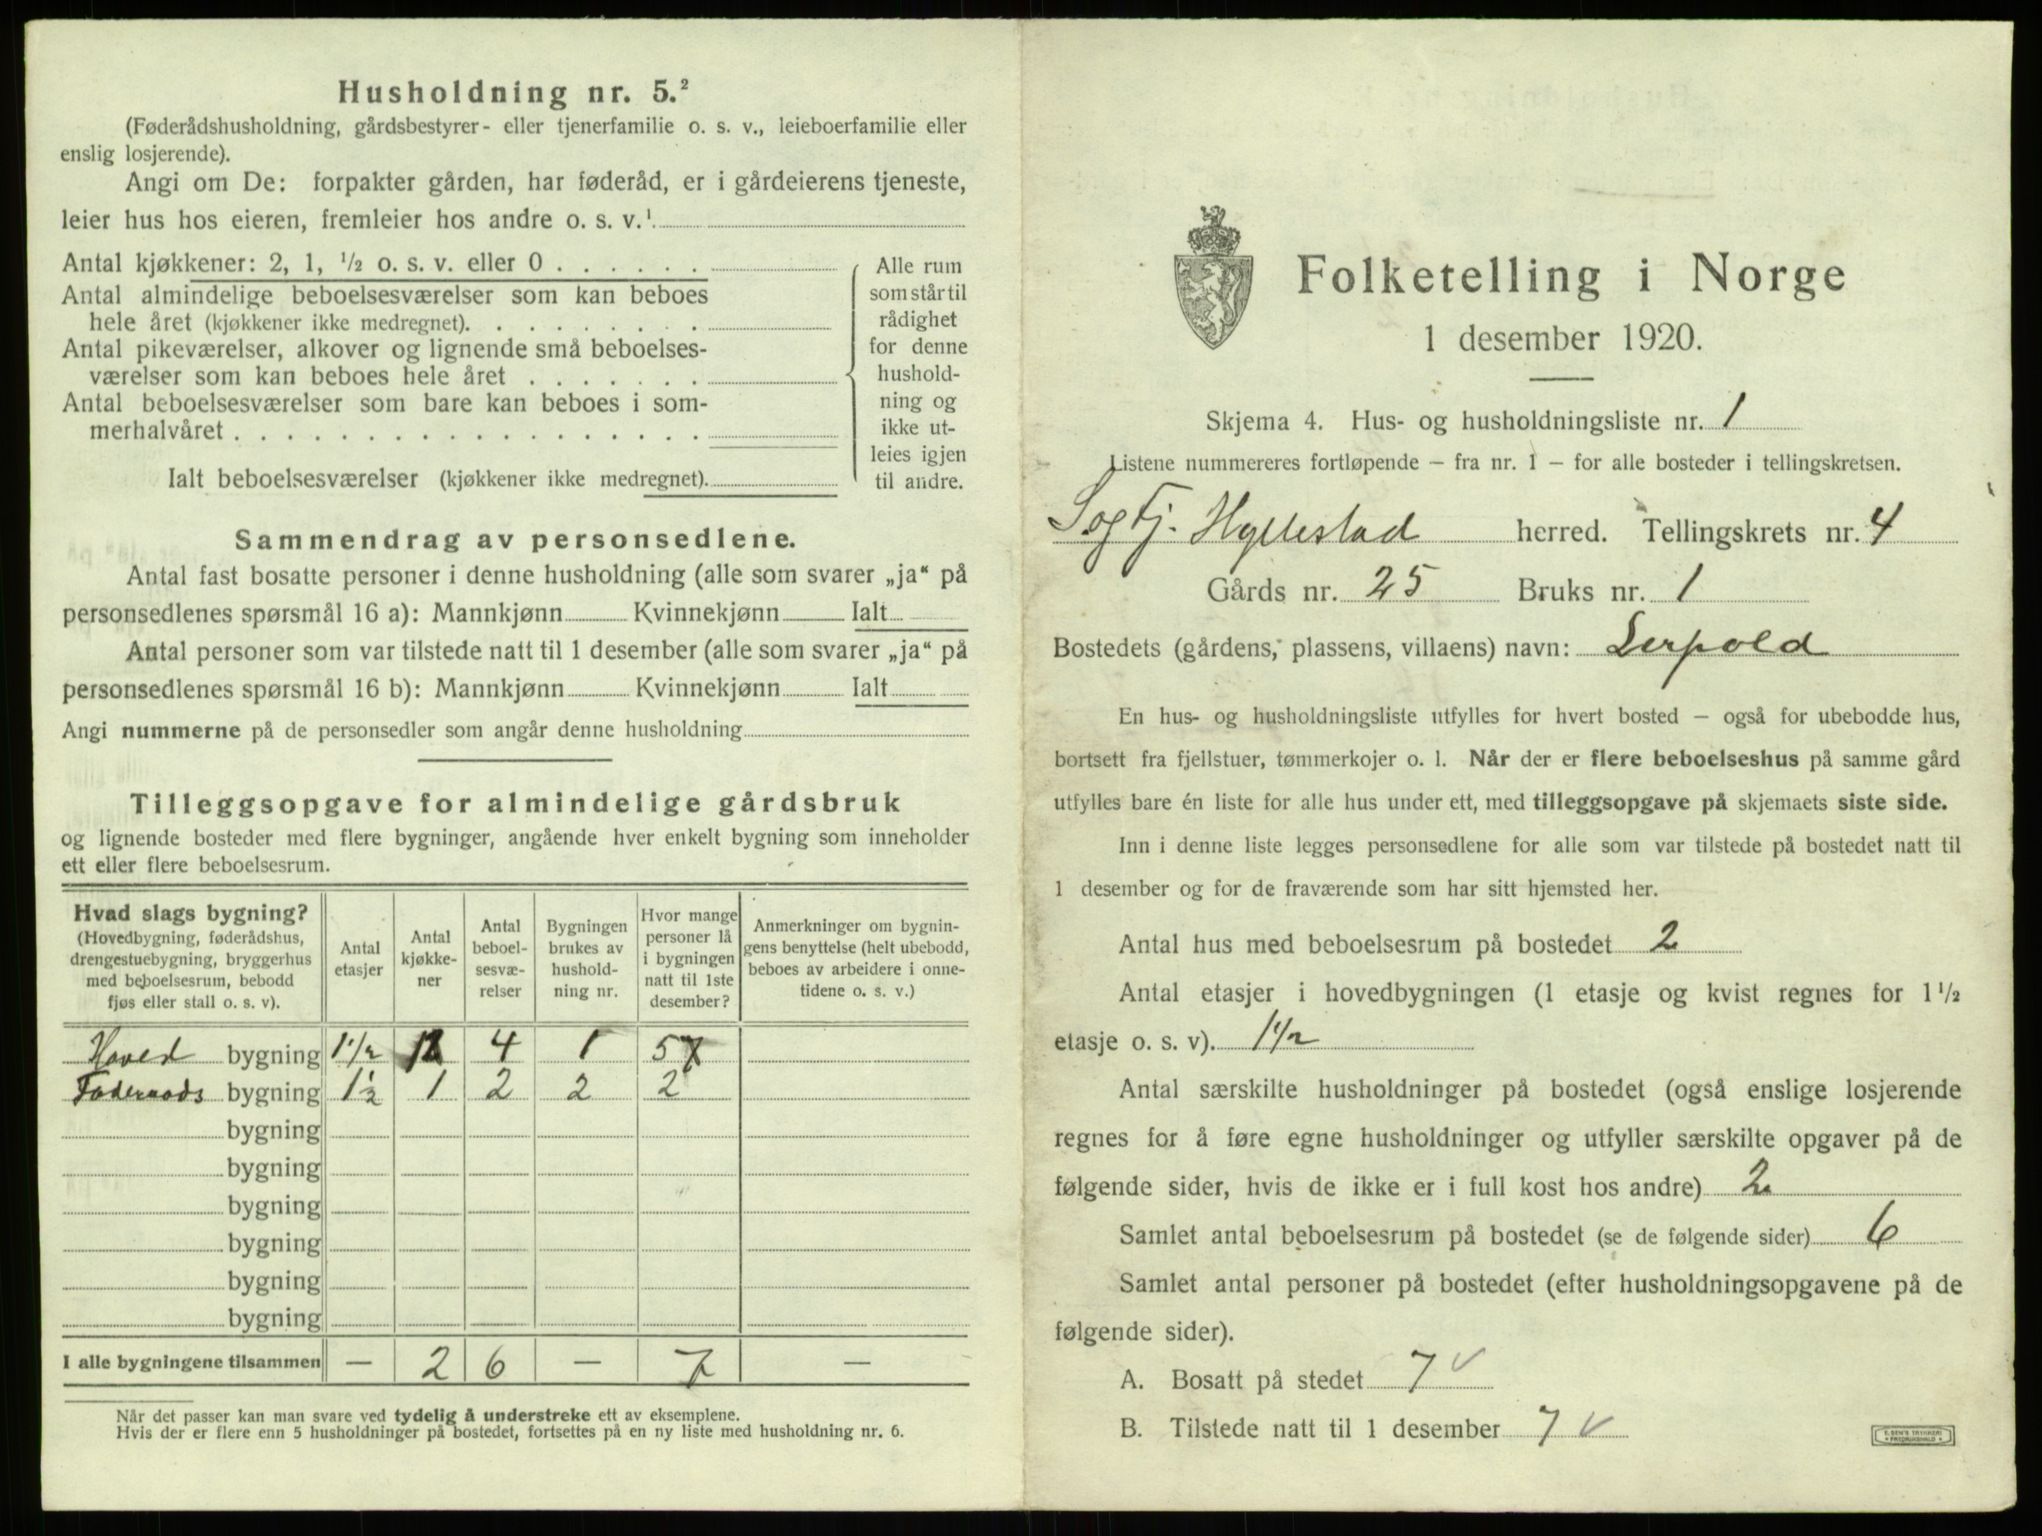 Husholdning nr. 5.²
(Føderådshusholdning, gårdsbestyrer- eller tjenerfamilie o. s. v., leieboerfamilie eller
enslig losjerende).
Angi om De: forpakter gården, har føderåd, er i gårdeierens tjeneste,
leier hus hos eieren, fremleier hos andre o. s. v.¹
Antal kjøkkener: 2, 1, ½ o. s. v. eller 0 . . . . . .
Antal almindelige beboelsesværelser som kan beboes
hele året (kjøkkener ikke medregnet). . . . . . . . .
Antal pikeværelser, alkover og lignende små beboelses-
værelser som kan beboes hele året . . . . . . .
Antal beboelsesværelser som bare kan beboes i som-
merhalvåret . . . . . . . . . . . . . . . . . .
Ialt beboelsesværelser (kjøkkener ikke medregnet).
Alle rum
som står til
rådighet
for denne
hushold-
ning og
ikke ut-
leies igjen
til andre.
Sammendrag av personsedlene.
Antal fast bosatte personer i denne husholdning (alle som svarer „ja“ på
personsedlenes spørsmål 16 a): Mannkjønn Kvinnekjønn Ialt
Antal personer som var tilstede natt til 1 desember (alle som svarer „ja“ på
personsedlenes spørsmål 16 b): Mannkjønn Kvinnekjønn Ialt
Angi nummerne på de personsedler som angår denne husholdning
Tilleggsopgave for almindelige gårdsbruk
og lignende bosteder med flere bygninger, angående hver enkelt bygning som inneholder
ett eller flere beboelsesrum.
Hvad slags bygning?
(Hovedbygning, føderådshus,
drengestuebygning, bryggerhus
med beboelsesrum, bebodd
fjøs eller stall o. s. v).
Antal
etasjer
Antal
kjøkke-
ner
Antal
beboel-
sesvæ-
relser
Bygningen
brukes av
hushold-
ning nr.
Hvor mange
personer lå
i bygningen
natt til 1ste
desember?
Anmerkninger om bygnin-
gens benyttelse (helt ubebodd,
beboes av arbeidere i onne-
tidene o. s. v.)
Hoved bygning 1½ 1 4 1 5
Føderaads bygning 1½ 1 2 2 2
bygning
bygning
bygning
bygning
bygning
bygning
I alle bygningene tilsammen — 2 6 — 7 —
Når det passer kan man svare ved tydelig å understreke ett av eksemplene.
Hvis der er flere enn 5 husholdninger på bostedet, fortsettes på en ny liste med husholdning nr. 6.
Folketelling i Norge
1 desember 1920.
Skjema 4. Hus- og husholdningsliste nr. 1
Listene nummereres fortløpende – fra nr. 1 – for alle bosteder i tellingskretsen.
Sogfj. Hyllestad herred. Tellingskrets nr. 4
Gårds nr. 25 Bruks nr. 1
Bostedets (gårdens, plassens, villaens) navn: Lerpold
En hus- og husholdningsliste utfylles for hvert bosted – også for ubebodde hus,
bortsett fra fjellstuer, tømmerkojer o. l. Når der er flere beboelseshus på samme gård
utfylles bare én liste for alle hus under ett, med tilleggsopgave på skjemaets siste side.
Inn i denne liste legges personsedlene for alle som var tilstede på bostedet natt til
1 desember og for de fraværende som har sitt hjemsted her.
Antal hus med beboelsesrum på bostedet 2
Antal etasjer i hovedbygningen (1 etasje og kvist regnes for 1½
etasje o. s. v). 1½
Antal særskilte husholdninger på bostedet (også enslige losjerende
regnes for å føre egne husholdninger og utfyller særskilte opgaver på de
følgende sider, hvis de ikke er i full kost hos andre) 2
Samlet antal beboelsesrum på bostedet (se de følgende sider) 6
Samlet antal personer på bostedet (efter husholdningsopgavene på de
følgende sider).
A. Bosatt på stedet 7 v
B. Tilstede natt til 1 desember 7 v